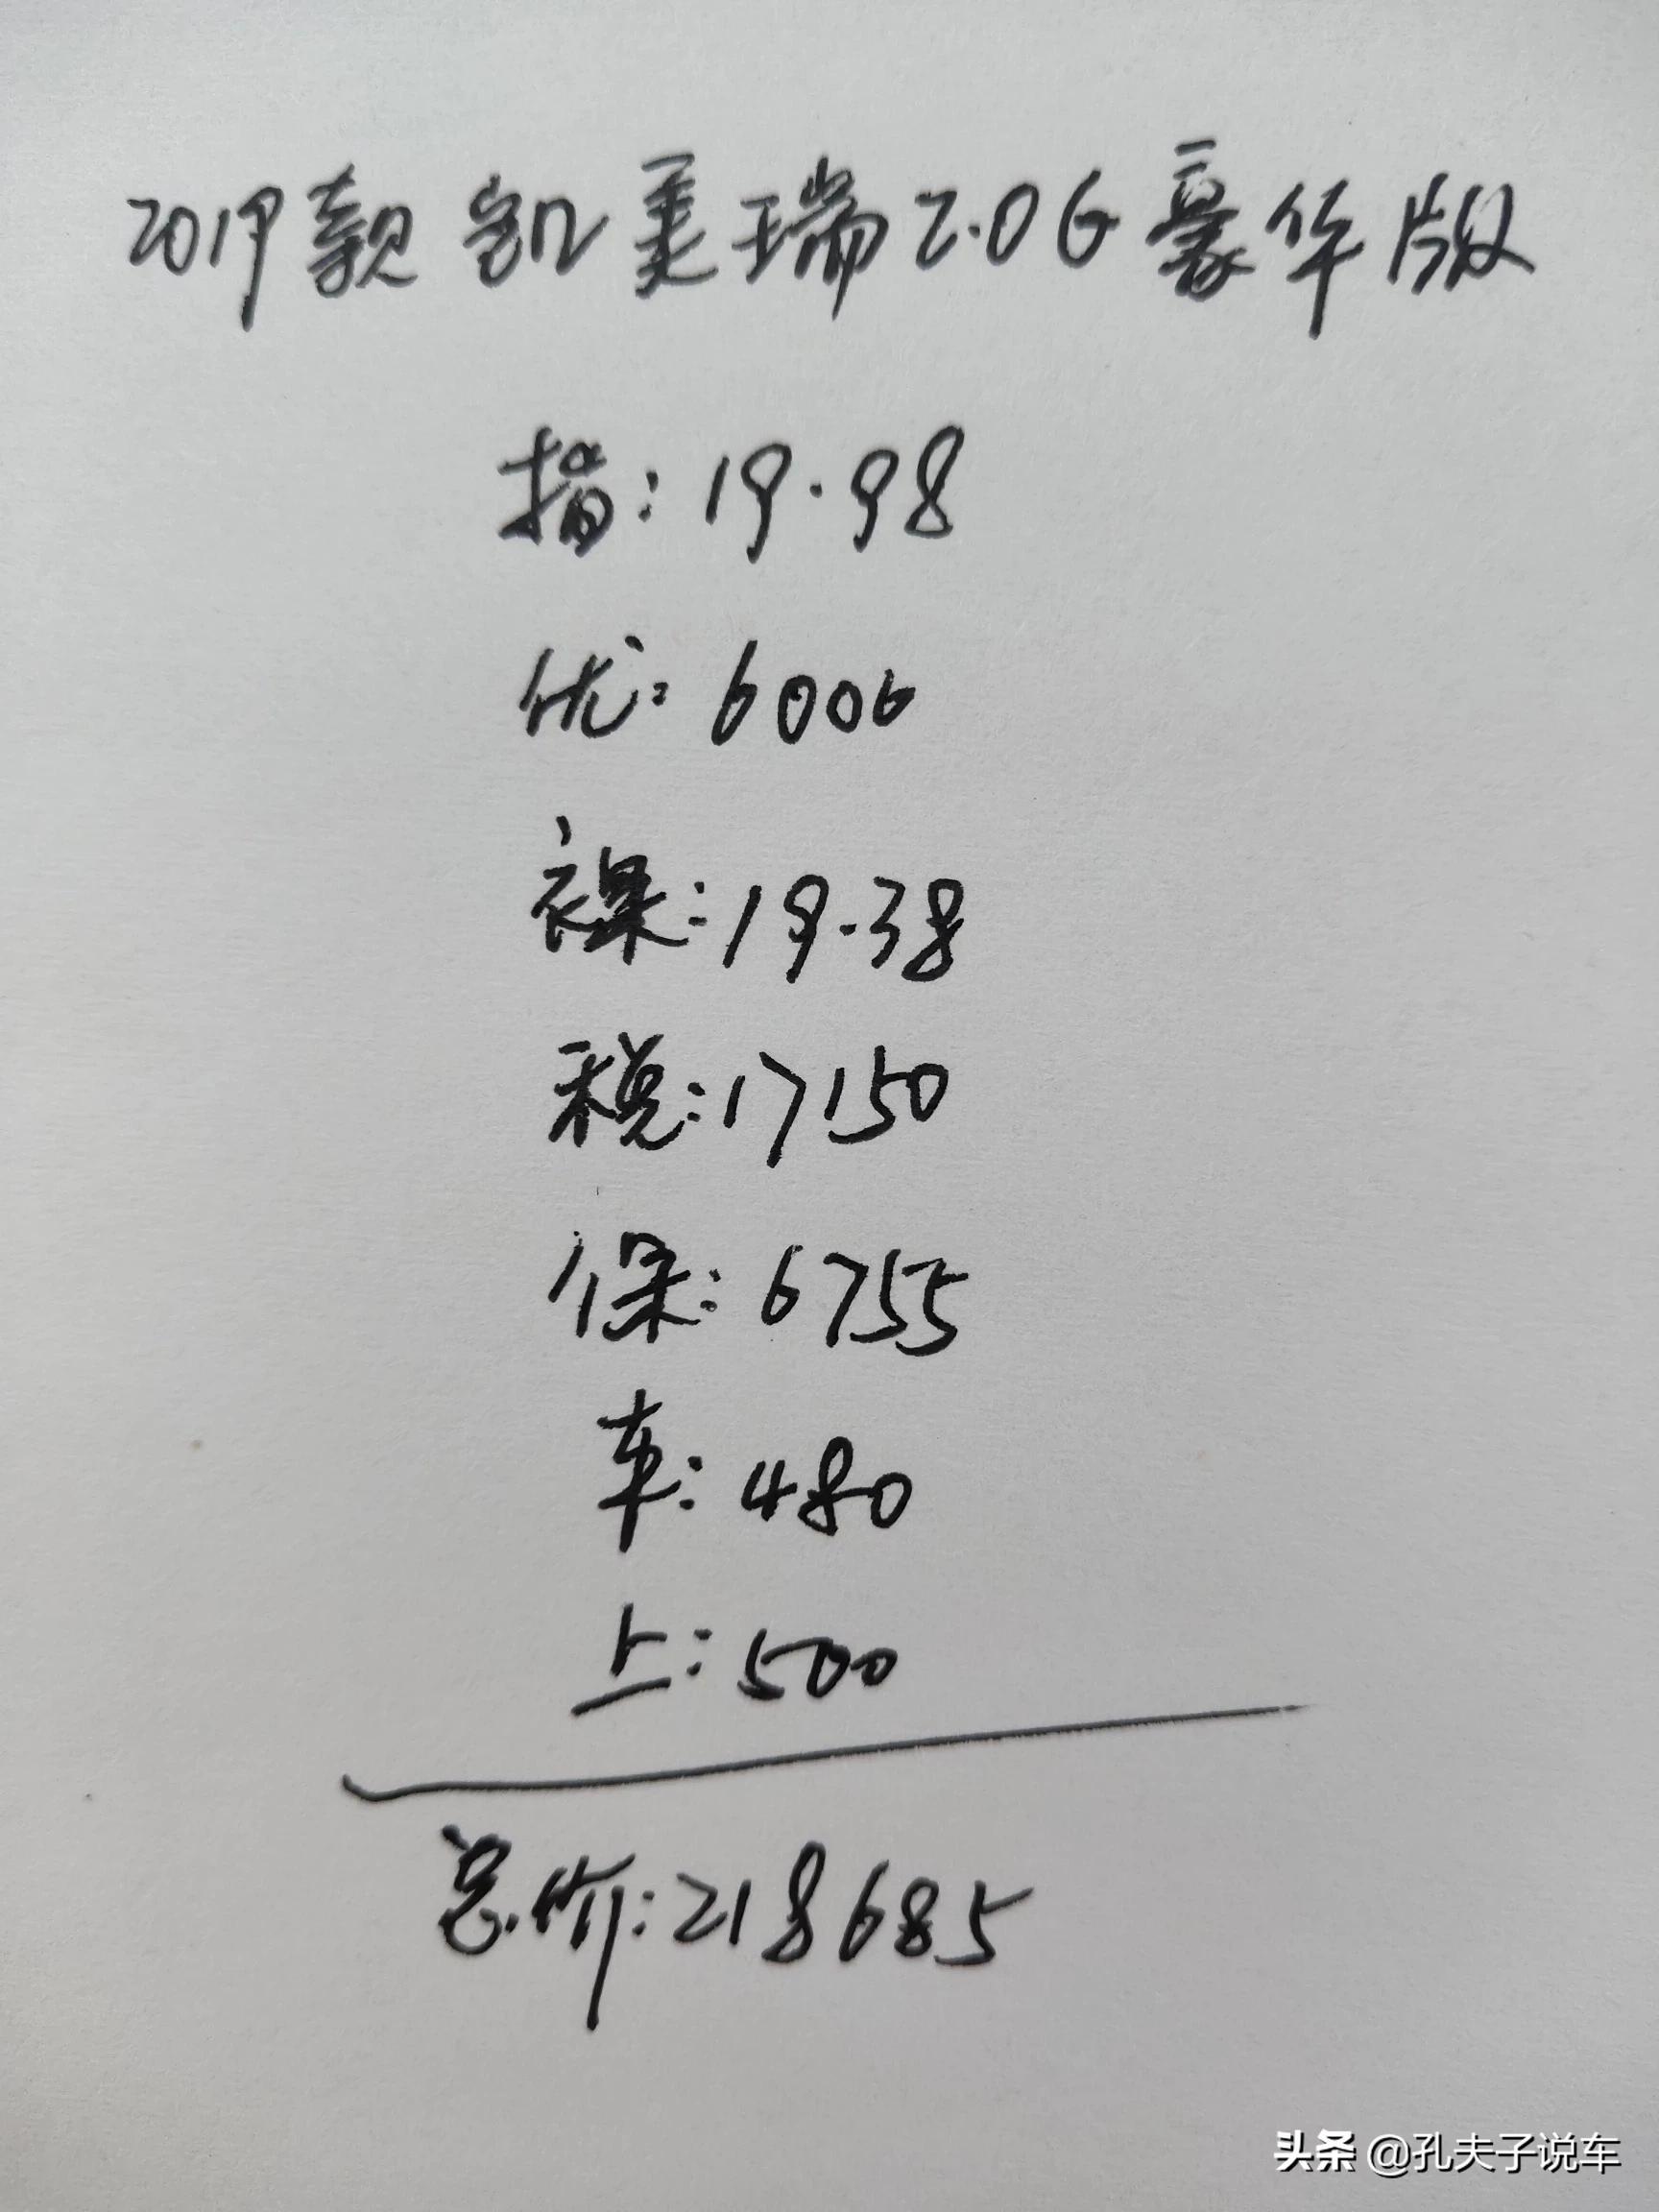 2019款凯美瑞2.0G豪华版
指:19.98
优:6000
裸:19.38
税:17150
保:6755
车:480
上:500
总价:218685
头条 @孔夫子说车